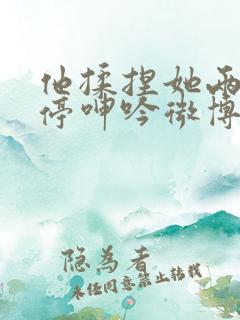 他揉捏她两
停呻吟微博
隐为者
未经同意禁止转载